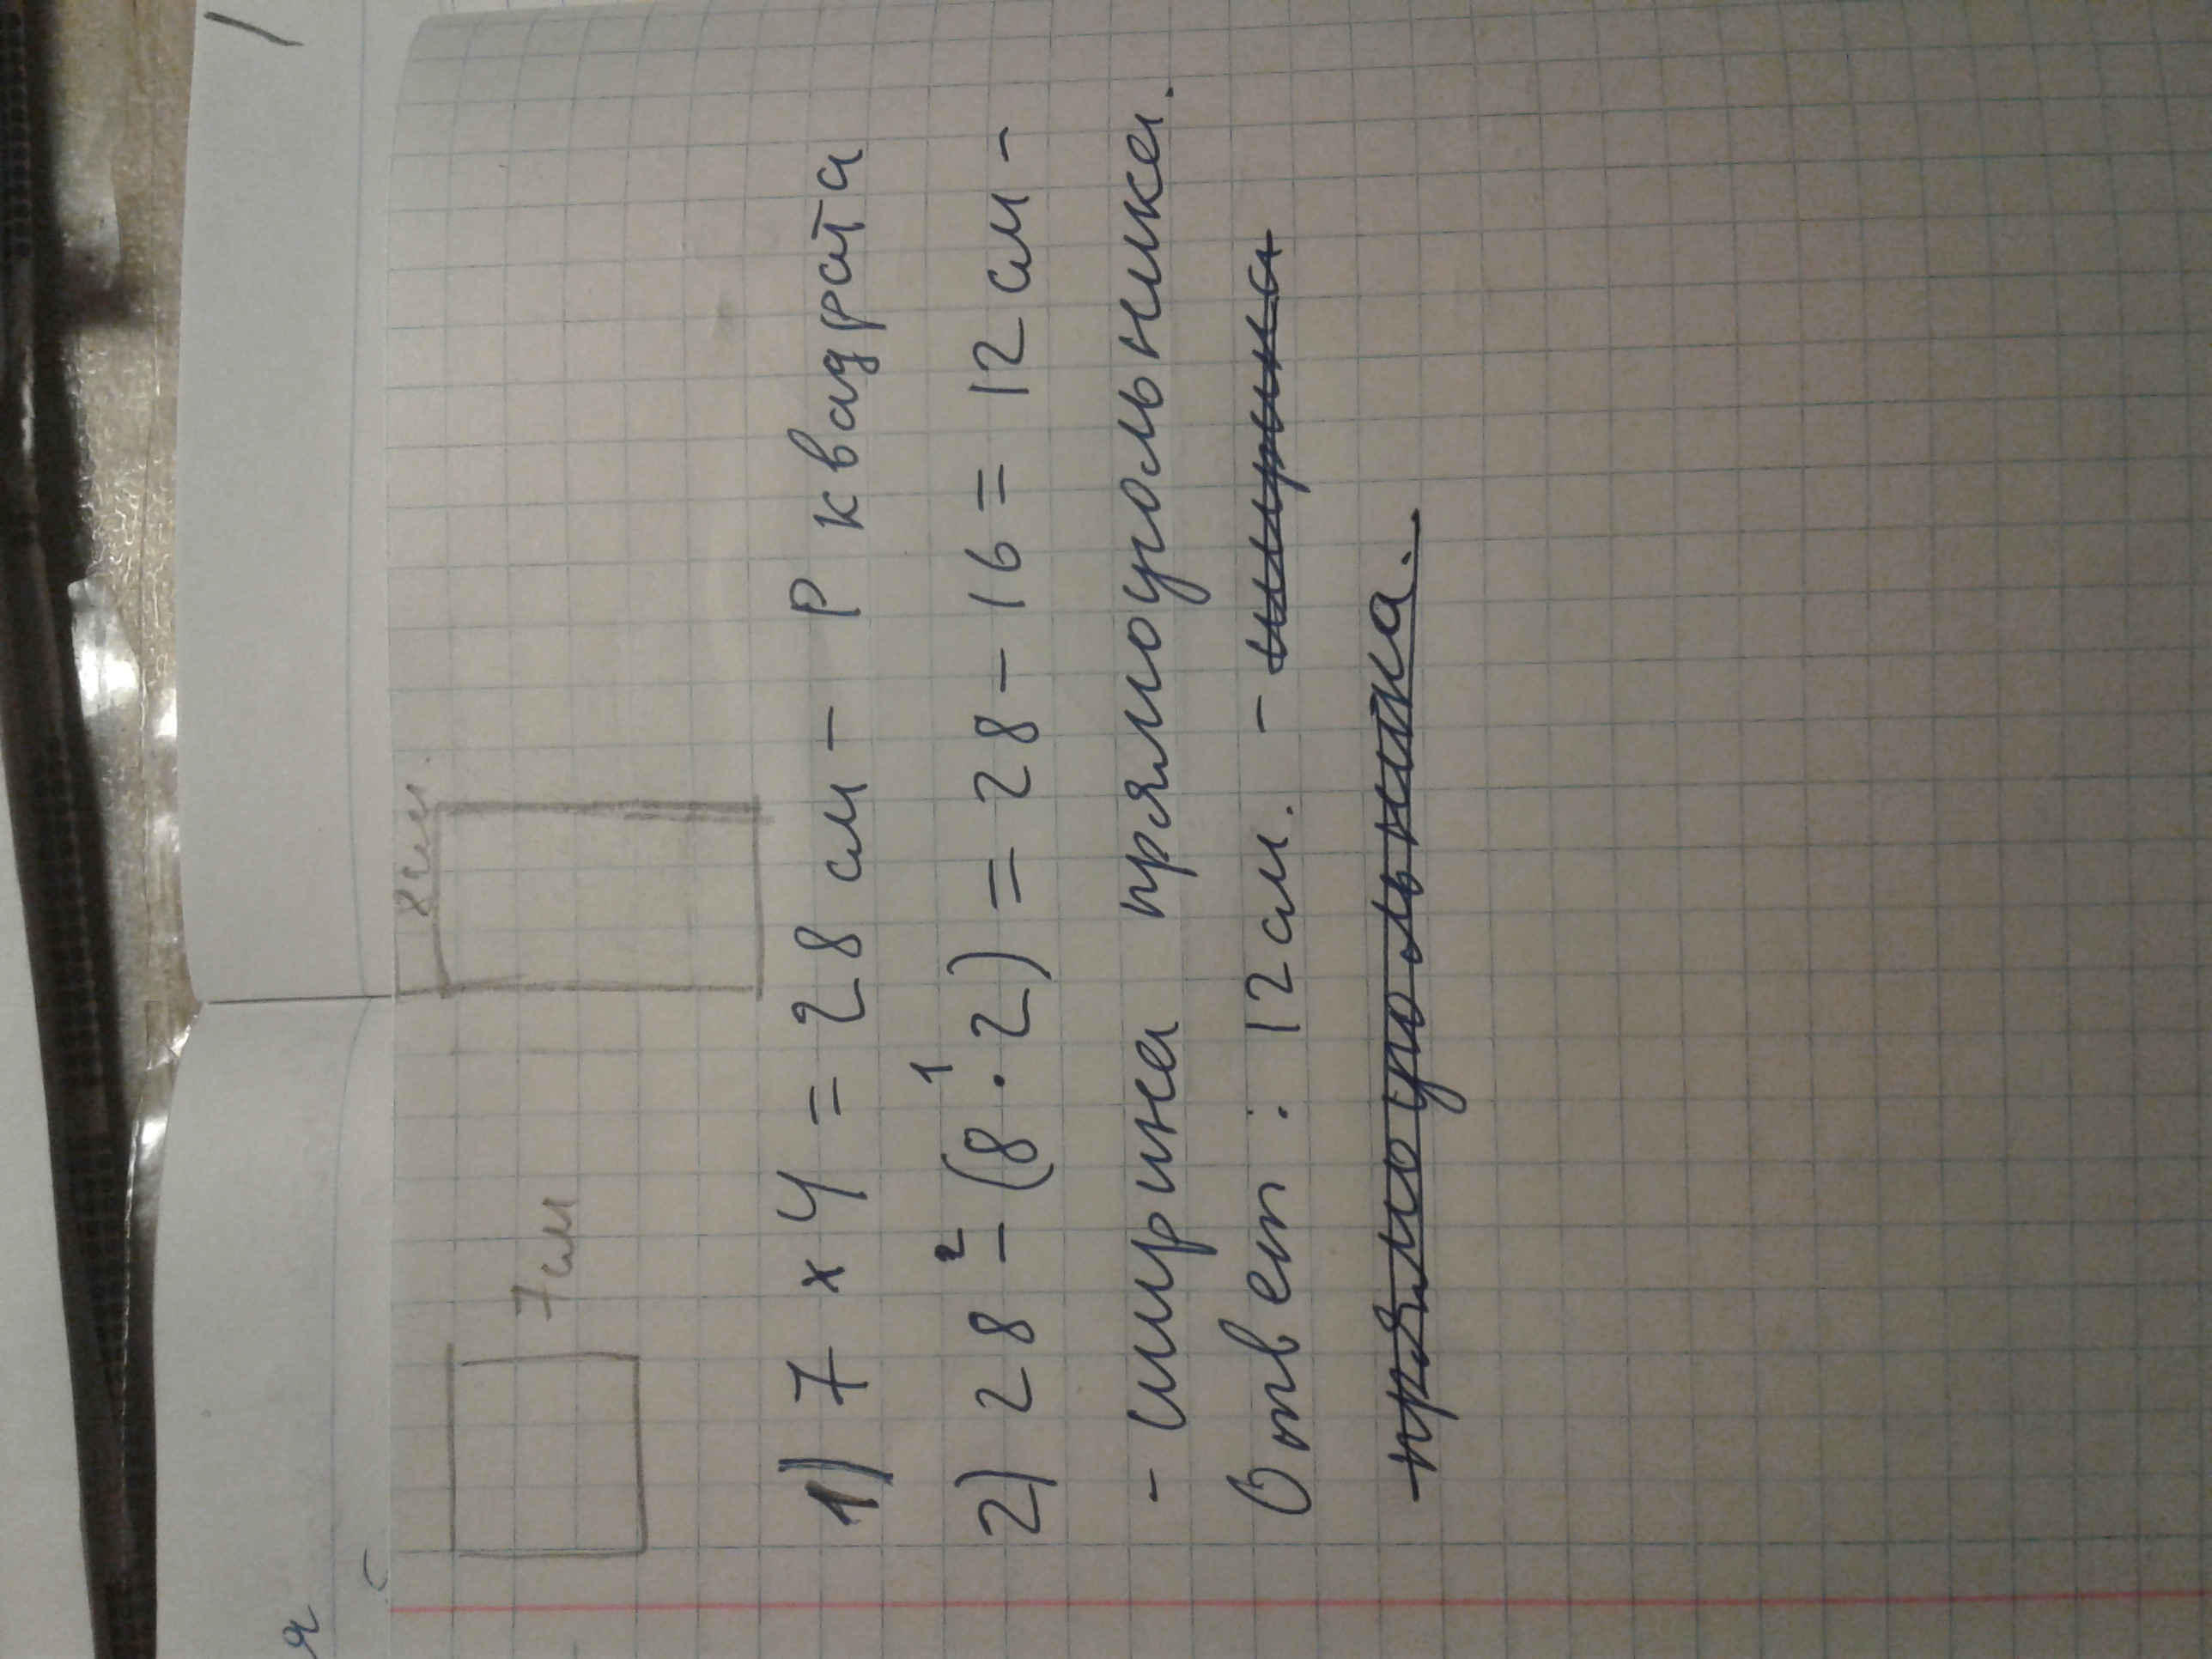 8 см.
7 см
1) 7 x 4 = 28 см - P квадрата
2) 28 - (8 · 2) = 28 - 16 = 12 см -
2 1
- ширина прямоугольника.
Ответ: 12 см. - ширина
прямоугольника.
я